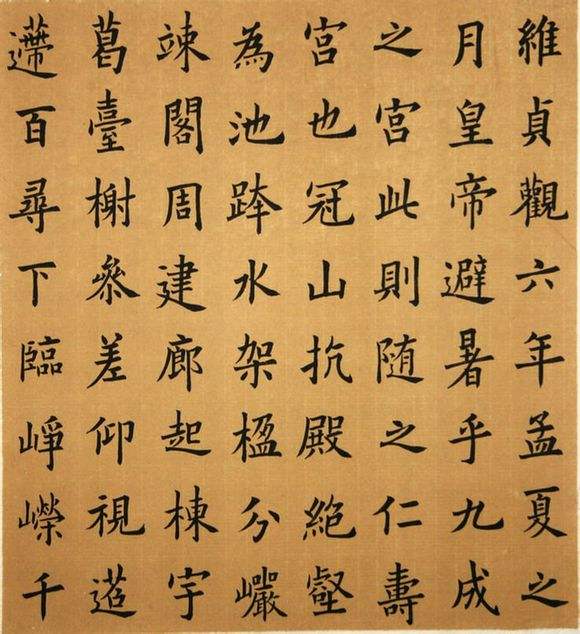 維貞觀六年孟夏之
月皇帝避暑乎九成
之宮此則随之仁壽
宮也冠山抗殿絕壑
為池跨水架楹分巖
竦閣周建廊起棟宇
葛臺榭叅差仰視迢
遰百尋下臨崢嶸千